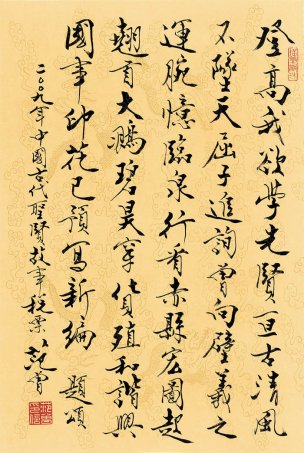 登高我欲學先賢亘古清風
不墜天屈子進詢曾向壁羲之
運腕憶臨泉行看赤縣宏圖起
翹首大鵬碧昊穿貨殖和諧興
國事印花已預寫新編 題頌
二〇〇九年中國古代聖賢故事稅票 范曾